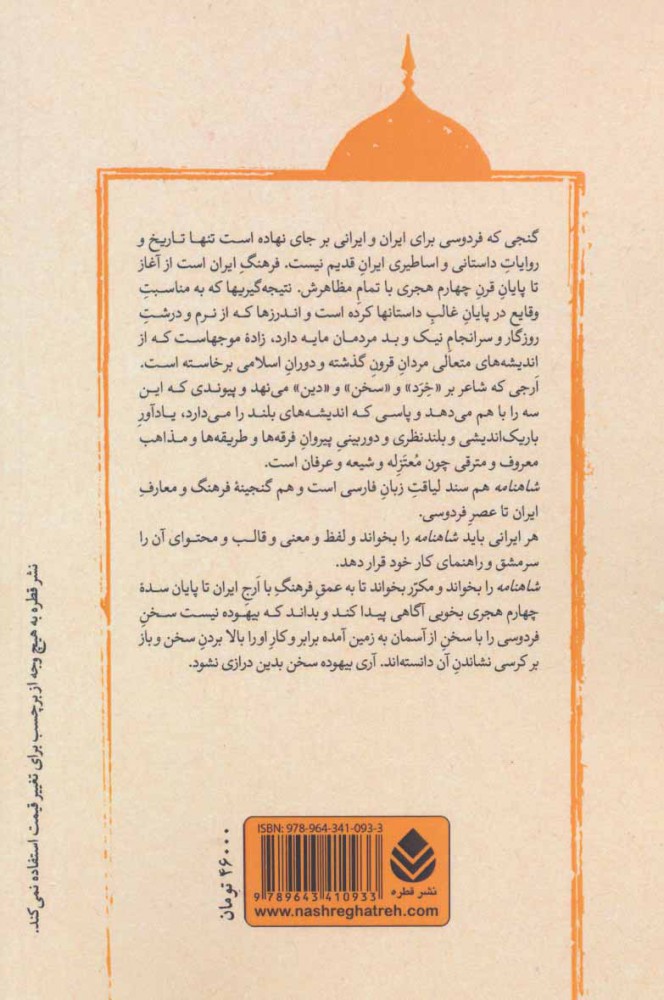 گنجی که فردوسی برای ایران و ایرانی بر جای نهاده است تنها تاریخ و
روایاتِ داستانی و اساطیری ایرانِ قدیم نیست. فرهنگِ ایران است از آغاز
تا پایانِ قرنِ چهارم هجری با تمامِ مظاهرش. نتیجه‌گیریها که به مناسبتِ
وقایع در پایانِ غالبِ داستانها کرده است و اندرزها که از نرم و درشتِ
روزگار و سرانجامِ نیک و بد مردمان مایه دارد، زادهٔ موجهاست که از
اندیشه‌های متعالی مردانِ قرونِ گذشته و دورانِ اسلامی برخاسته است.
اَرجی که شاعر بر «خِرَد» و «سخن» و «دین» می‌نهد و پیوندی که این
سه را با هم می‌دهد و پاسی که اندیشه‌های بلند را می‌دارد، یادآورِ
باریک‌اندیشی و بلندنظری و دوربینیِ پیروانِ فرقه‌ها و طریقه‌ها و مذاهب
معروف و مترقی چون مُعتَزِله و شیعه و عرفان است.
شاهنامه هم سند لیاقتِ زبانِ فارسی است و هم گنجینهٔ فرهنگ و معارفِ
ایران تا عصرِ فردوسی.
هر ایرانی باید شاهنامه را بخواند و لفظ و معنی و قالب و محتوای آن را
سرمشق و راهنمای کار خود قرار دهد.
شاهنامه را بخواند و مکرّر بخواند تا به عمقِ فرهنگِ با اَرجِ ایران تا پایان سدهٔ
چهارم هجری بخوبی آگاهی پیدا کند و بداند که بیهوده نیست سخنِ
فردوسی را با سخنِ از آسمان به زمین آمده برابر و کارِ او را بالا بردنِ سخن و باز
بر کرسی نشاندنِ آن دانسته‌اند. آری بیهوده سخن بدین درازی نشود.
نشر قطره به هیچ وجه از برچسب برای تغییر قیمت استفاده نمی‌کند.
۴۶۰۰۰ تومان
ISBN: 978-964-341-093-3
9 789643 410933
نشر قطره
www.nashreghatreh.com